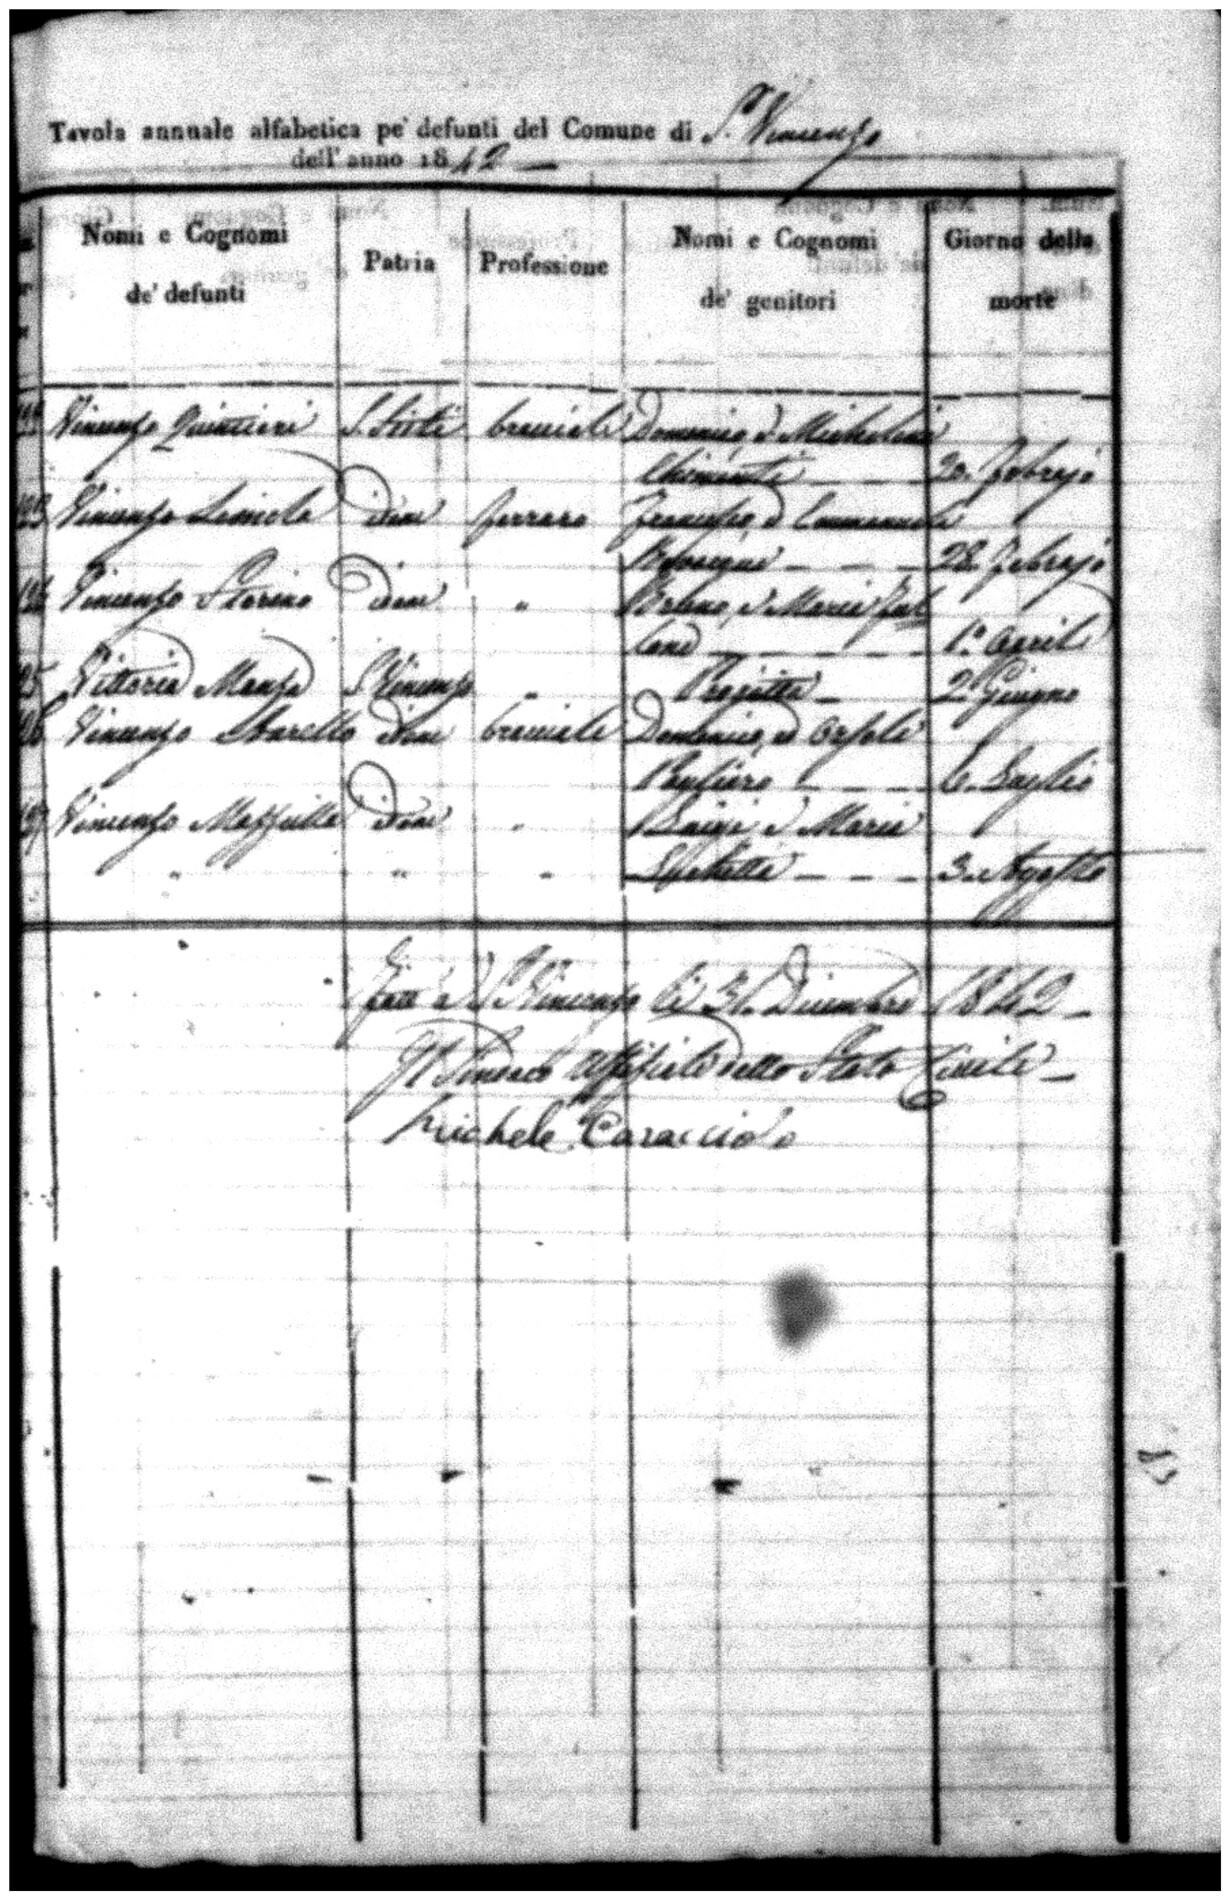 Tavola annuale alfabetica pe' defunti del Comune di S. Vincenzo
dell'anno 1842
Nomi e Cognomi
de' defunti
Patria
Professione
Nomi e Cognomi
de' genitori
Giorno della
morte
Vincenzo Quintieri S. Sisti bracciale Domenico, e Michelina
Chimenti 20. Febrajo
Vincenzo idem ferraro Francesco, e Emmanuela
28. Febrajo
126 Vincenzo Storino idem " e Maria
1.° Aprile
Vittoria Manza S. Vincenzo " Projetta 2 Giugno
Vincenzo Sbarello idem bracciale Domenico, ed Orsola
Rugiero 6. Luglio
127 Vincenzo Maffulla idem " Luigi e Maria
" " " 3. Agosto
Fatt' a S. Vincenzo li 31. Dicembre 1842
Il Sindaco Uffiziale dello Stato Civile
Michele Caracciolo